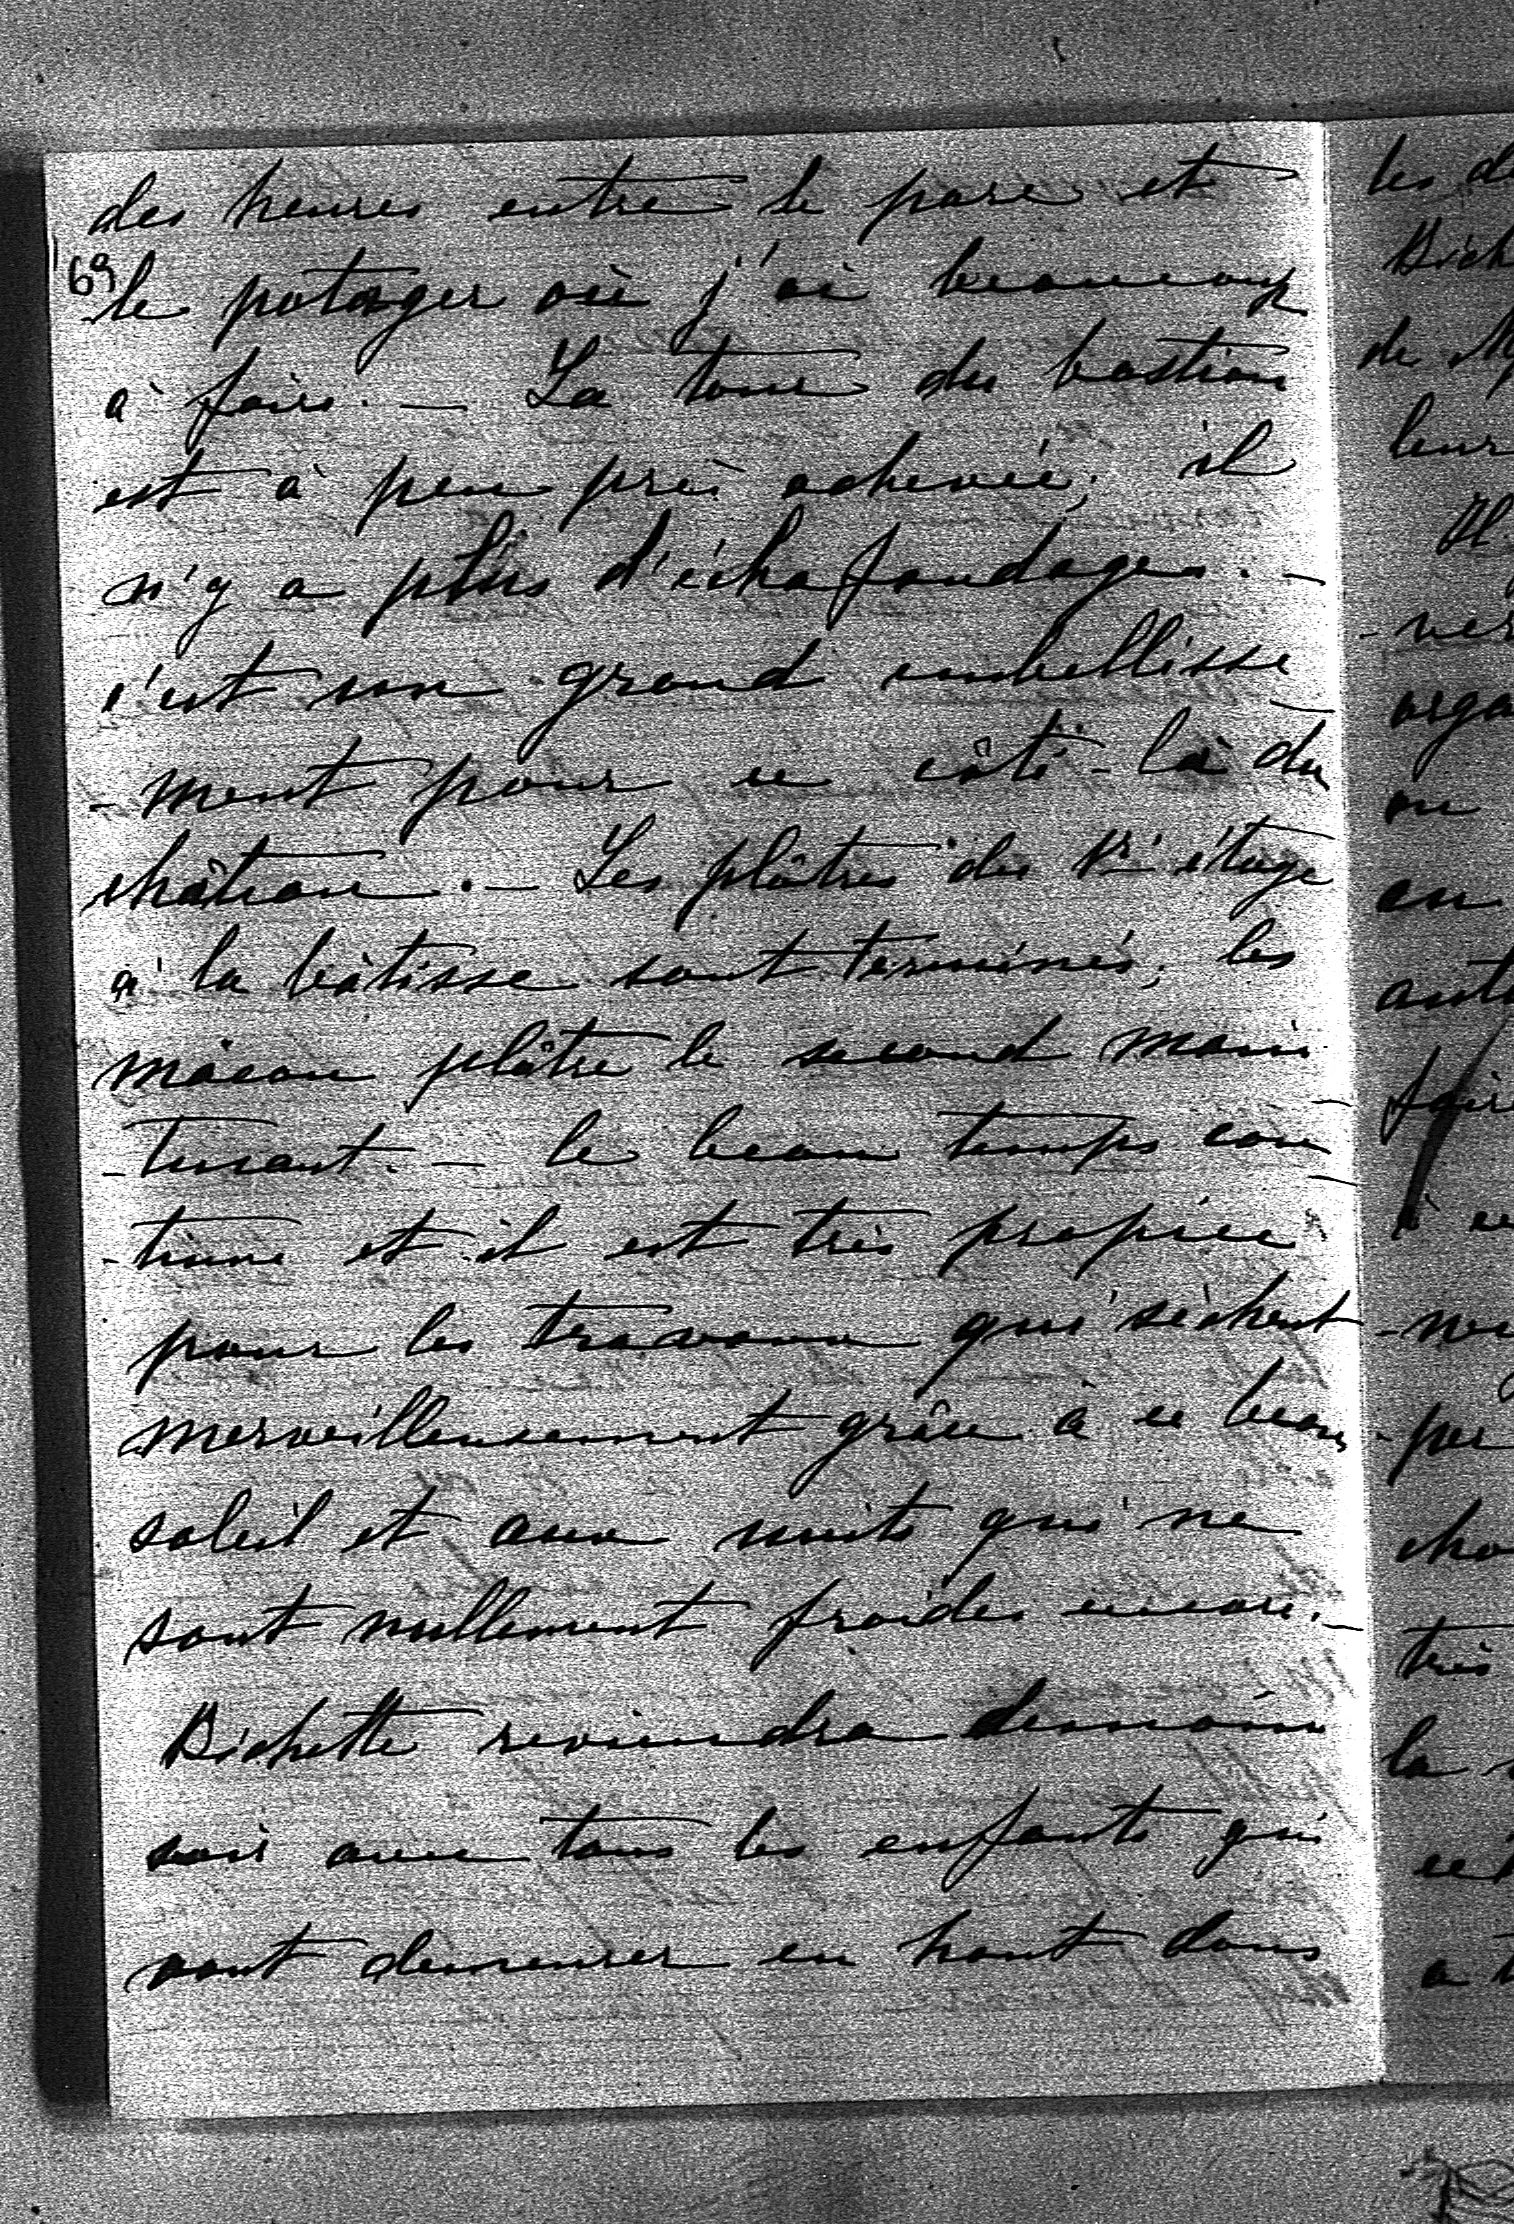 des heures entre le parc et
69
le potager où j'ai beaucoup
à faire. — La tour du bastion
est à peu près achevée; il
n'y a plus d'échafaudages. —
c'est un grand embellisse-
-ment pour ce côté-là du
château. — Les plâtres du 1er étage
à la bâtisse sont terminés; les
maçon plâtre le second main-
-tenant. — le beau temps con-
-tinue et il est très propice
pour les travaux qui sèchent
merveilleusement grâce à ce beau
soleil et aux nuits qui ne
sont nullement froides encore. —
Bichette reviendra demain
soir avec tous les enfants qui
vont demeurer en haut dans
les
de
leur
-ver
orga
on
en
auto
fair
à ce
cho
très
la
a